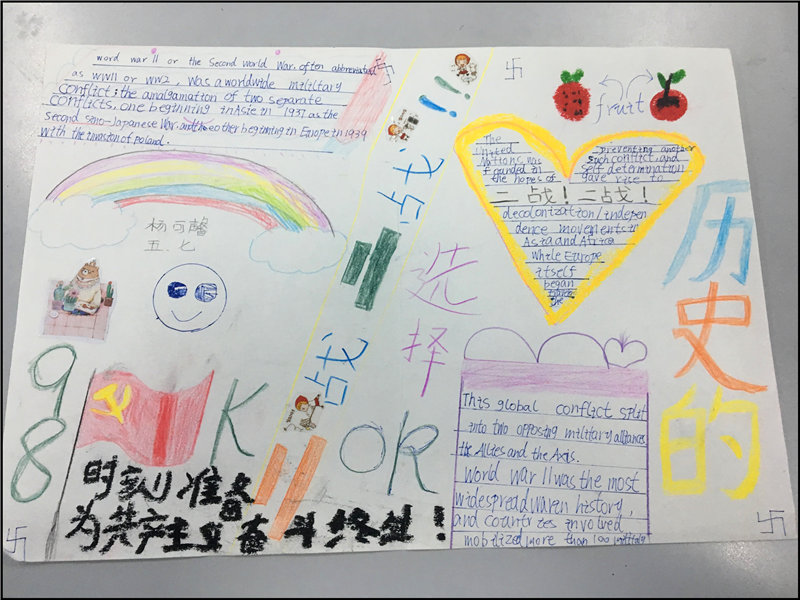 word war II or the Second World War. often abbreviated
as WWII or WW2, was a worldwide mililtary
conflict; the amalgamation of two separate
conflicts. one beginning in Asia in 1937 as the
second sino-Japanese War. and the other beginning in Europe in 1939
with the invasion of poland.
二战!
二战
fruit
The
United
Nations was
founded in
the hopes of
preventing another
such conflict. and
self determination
gave rise to
二战!二战!
decolonization/indepen
dence movements in
Asia and Africa
while Europe
itself
began
the
杨可馨
五.七
历史的
选择
98
K
OR
This global conflict split
into two opposing military alliances
the Allies and the Axis.
World War II was the most
widespread war in history,
and countries involved
mobilized more than 100 million
时刻准备
为共产主义奋斗终生!